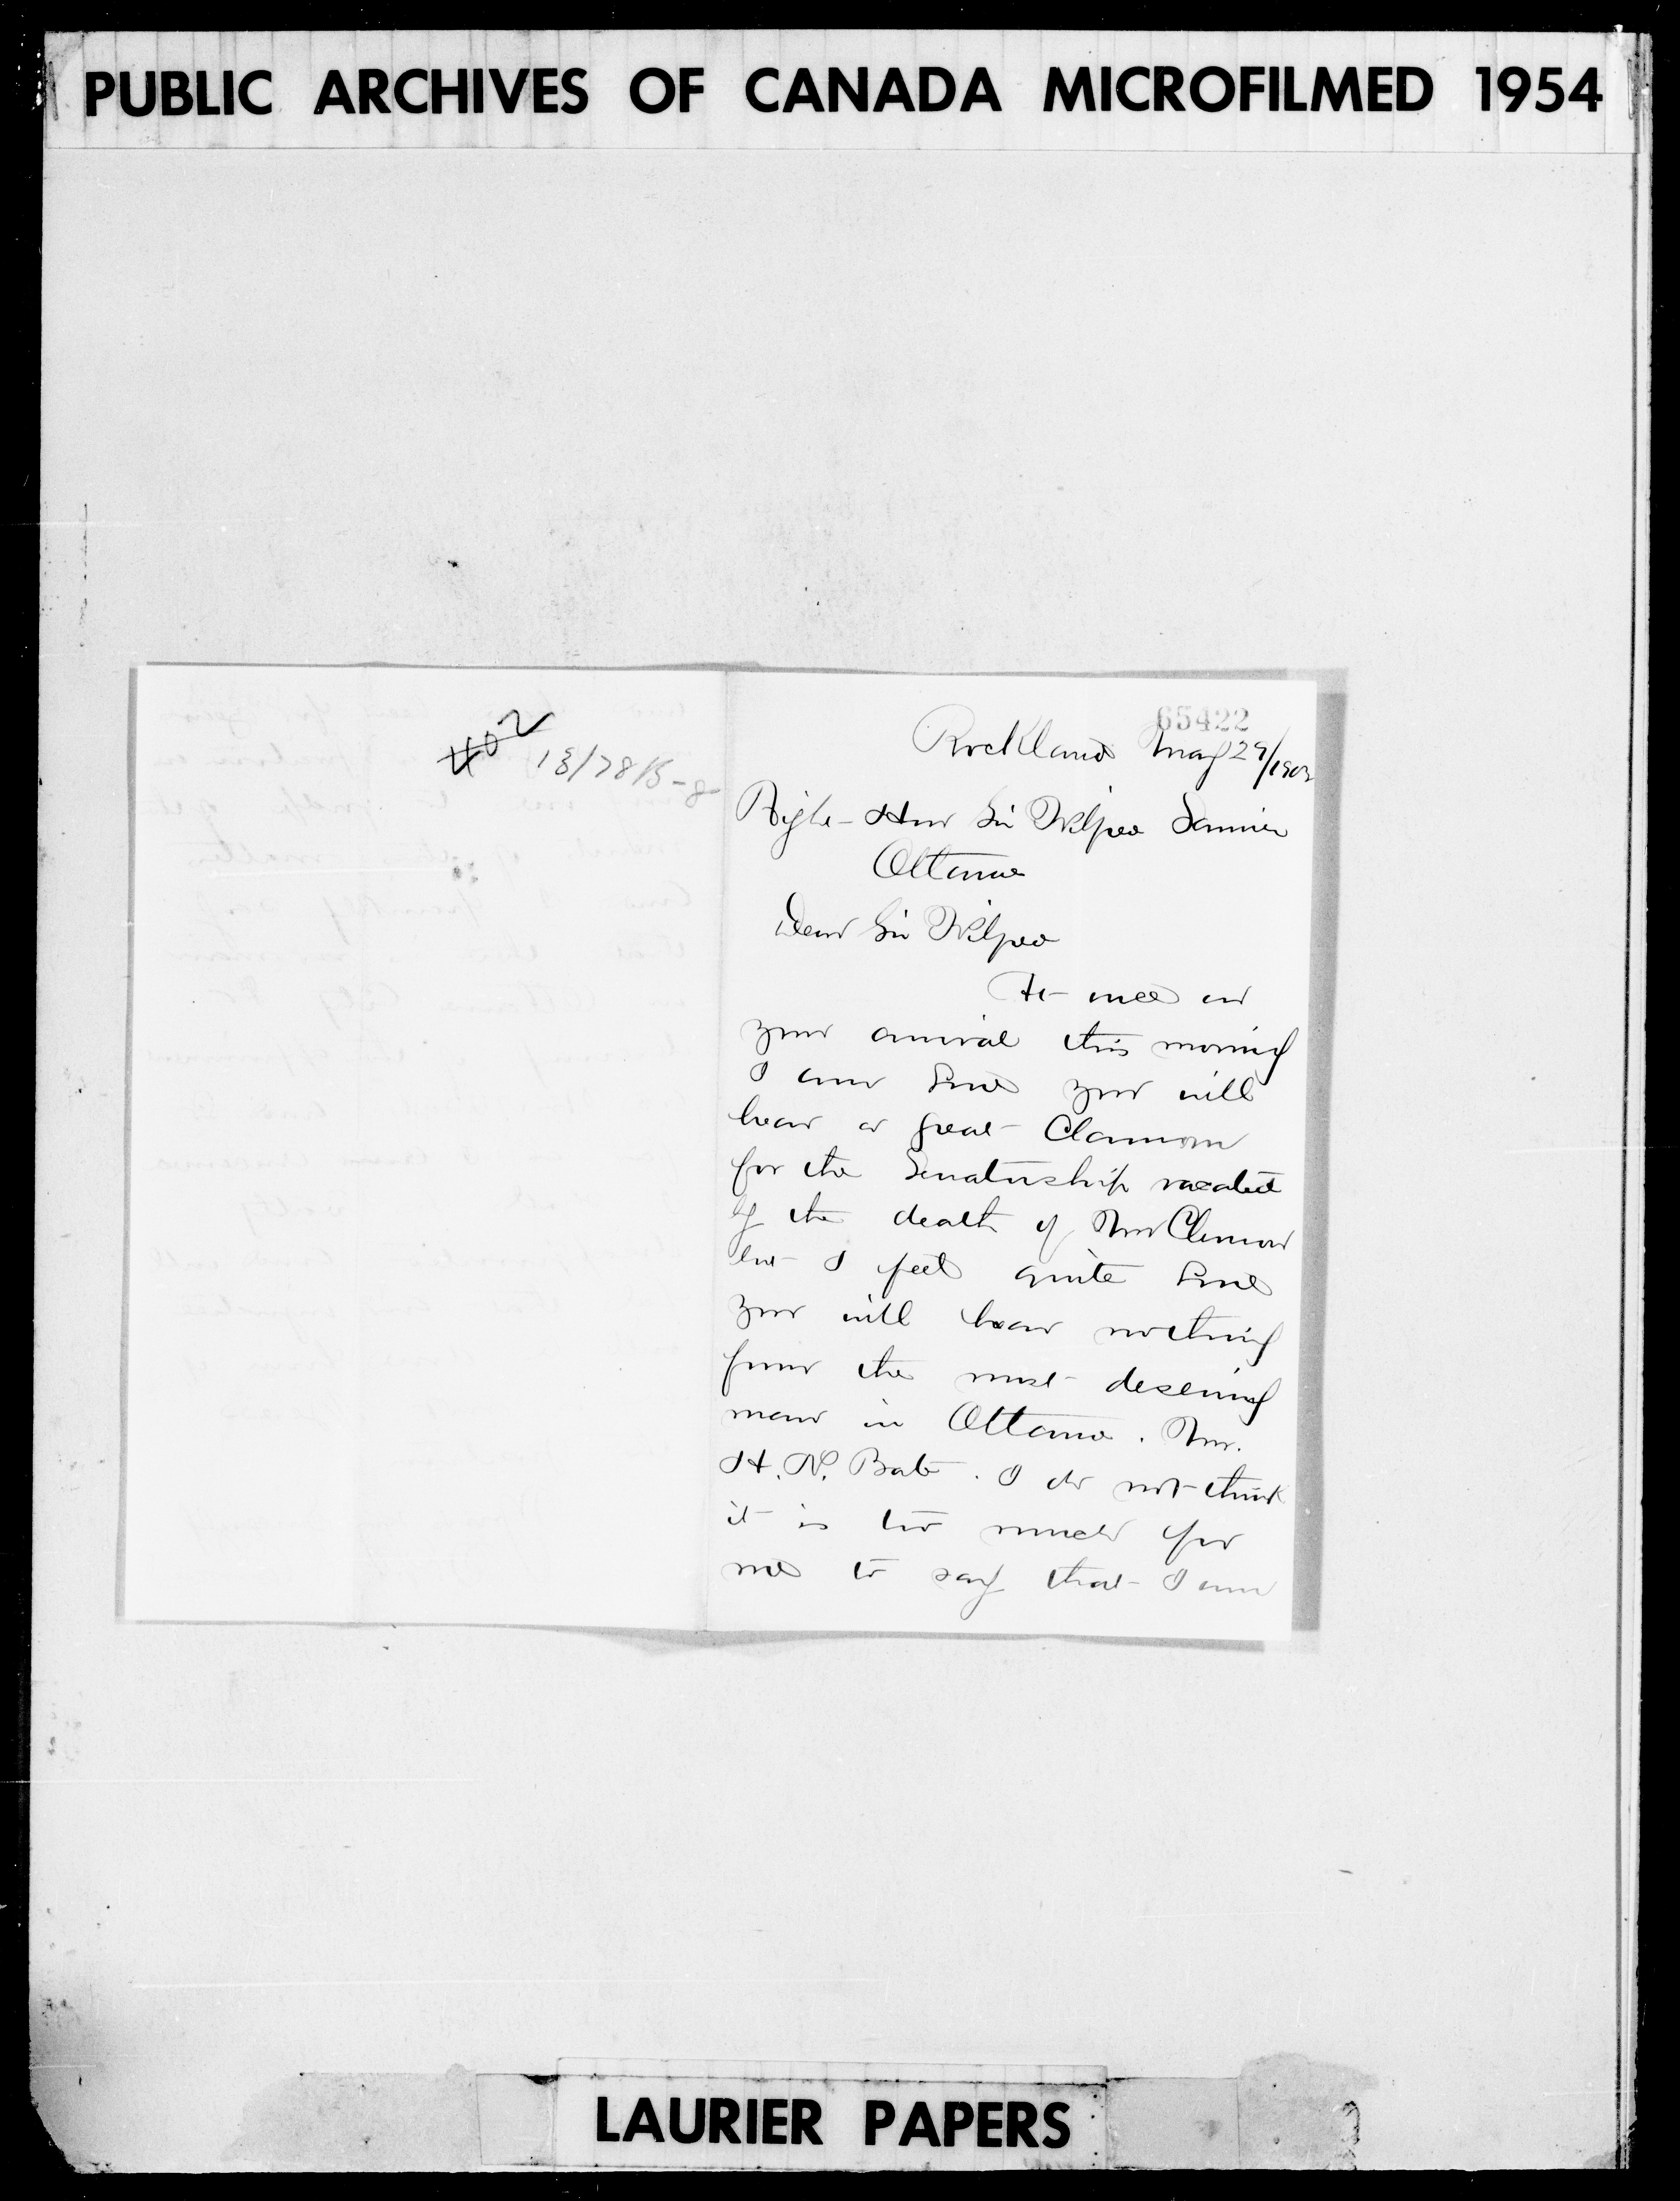 PUBLIC ARCHIVES OF CANADA MICROFILMED 1954
65422
Rockland May 29/1902
Right Hon Sir Wilfred Laurier
Ottawa
Dear Sir Wilfred
At once on
your arrival this morning
I am sure you will
hear a great Clamour
for the Senatorship vacated
by the death of Mr Clemow
but I feel quite sure
you will hear nothing
from the most deserving
man in Ottawa. Mr.
H. N. Bate. I do not think
it is too much for
me to say that I am
LAURIER PAPERS